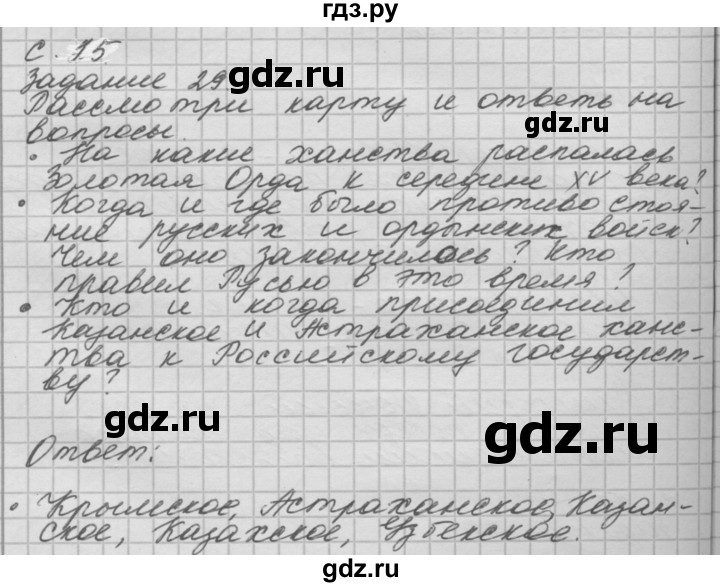 гдз.ру
с. 15
Задание 29
gdz.ru
Рассмотри карту и ответь на
gdz.ru
вопросы.
• На какие ханства распалась
Золотая Орда к середине XV века?
• Когда и где было противостоя-
ние русских и ордынских войск?
Чем оно закончилось? Кто
правил Русью в это время?
• Кто и когда присоединил
Казанское и Астраханское ханс-
тва к Российскому государст-
ву?
gdz.ru
gdz.ru
Ответ:
• Крымское, Астраханское, Казан-
ское, Казахское, Узбекское.